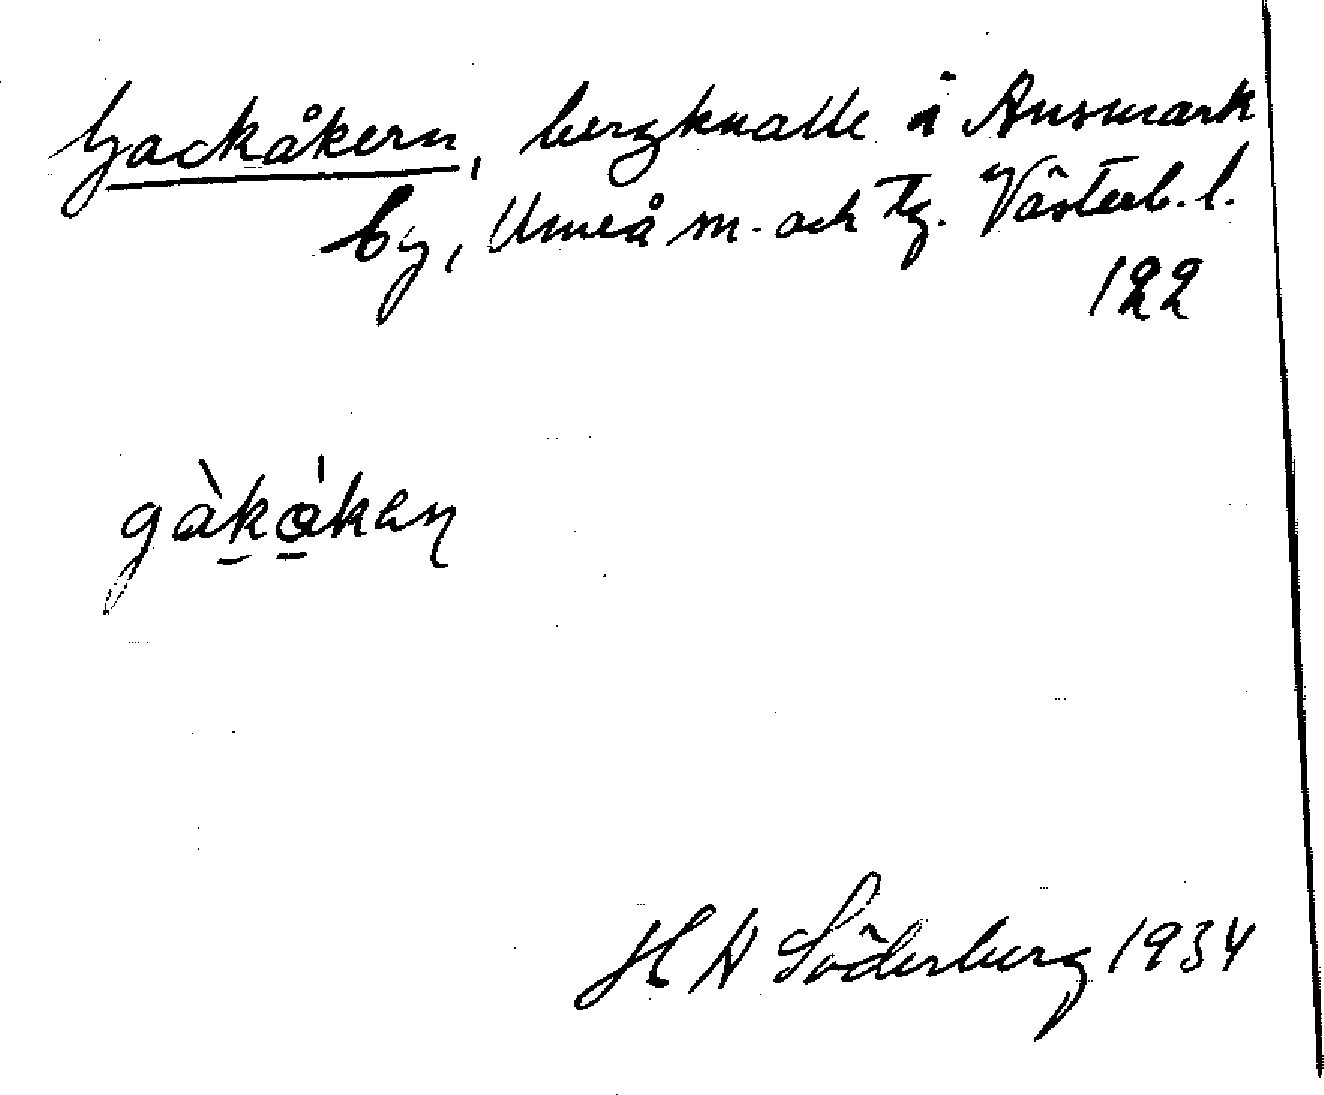 Gackåkern, bergknalle i Ansmark
by, Umeå sn. och tg. Västerb. l.
122
gàkákken
H A Söderberg 1934